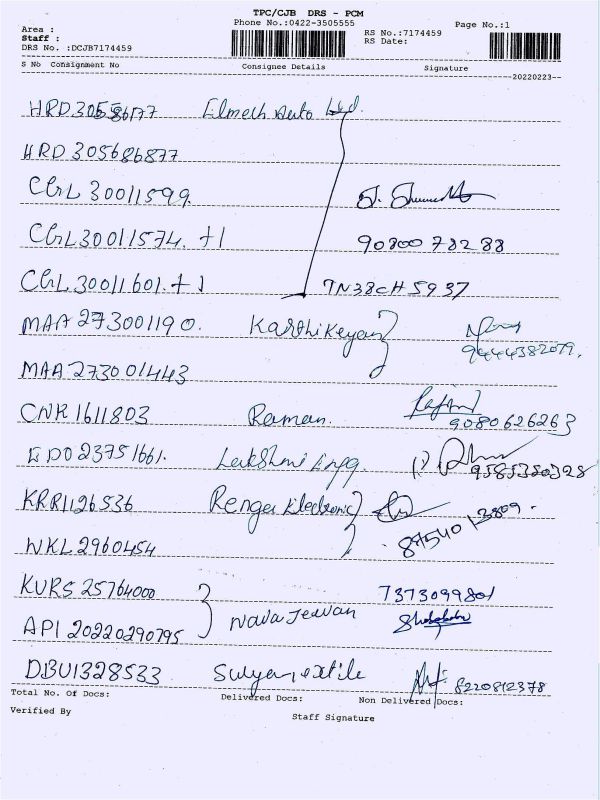 TPC/CJB DRS - PCM
Phone No.:0422-3505555
Page No.:1
Area :
Staff :
DRS No. :DCJB7174459
RS No.:7174459
RS Date:
S No Consignment No Consignee Details Signature
--20220223--
HRD 305586177 Elmech Auto Ltd.
HRD 305686877
CGL 30011599
CGL30011574. +1 9080078288
CGL 30011601. +1 TN38CH5937
MAA 273001190. Karthikeyan
9444382079.
MAA 273001443
CNR 1611803 Raman.
9080626263
EDO 23751661. Lakshmi Engg. 9585350328
KRR1126536 Renger Electronic
8754013809.
WKL 2960454
KURS 25764000 7373099801
API 20220290795 Nava Jeevan
DBU1328533 Surya textile 8220812378
Total No. Of Docs: Delivered Docs: Non Delivered Docs:
Verified By Staff Signature